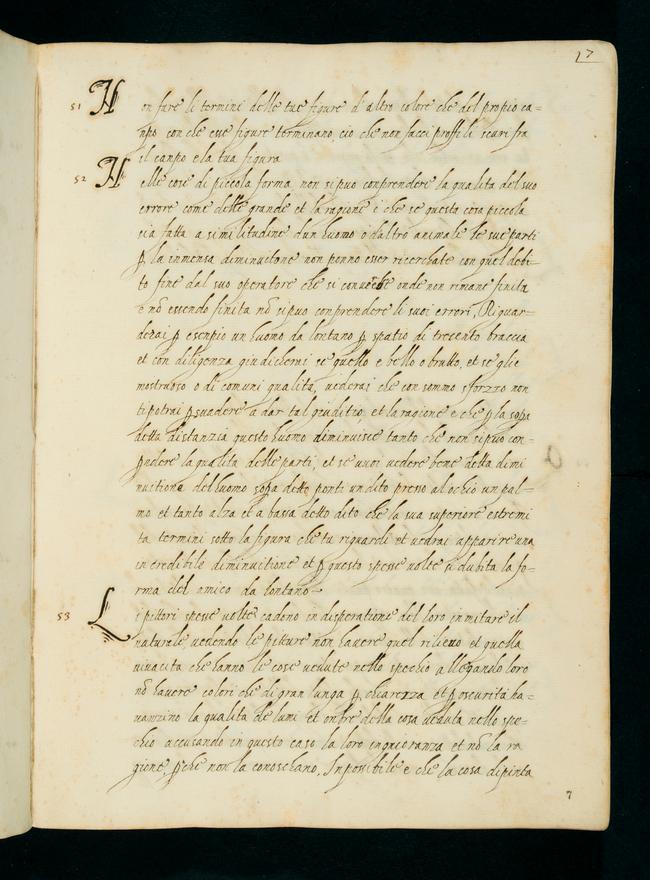 17
51 Non fare li termini delle tue figure d'altro colore che del propio ca=
npo con che esse figure terminano, cio che non facci proffili scuri fra
il campo e la tua figura
52 Nelle cose di piccola forma non si puo conprendere la qualita del suo
errore come delle grande et la ragione è che se questa cosa piccola
sia fatta a similitudine d'un huomo o d'altro animale le sue parti
ꝑ la inmensa diminuitione non ponno esser ricerchate con quel debi=
to fine dal suo operatore che si conviene onde non rimane finita
e nō essendo finita nō si puo conprendere li suoi errori, Riguar=
derai ꝑ esenpio un huomo da lontano ꝑ spatio di trecento braccia
et con diligenza giudicherai se quello e bello o brutto, et se glie
mostruoso o di comuni qualita, vederai che con sommo sforzzo non
ti potrai ꝑsuadere a dar tal giuditio, et la ragione e che ꝑ la sopa
detta distanzia questo huomo diminuisce tanto che non si puo con=
pndere la qualita delle parti, et se vuoi vedere bene detta dimi
nuitione del huomo sopa detto ponti un dito presso al ochio un pal=
mo et tanto alza et a bassa detto dito che la sua superiore estremi
ta termini sotto la figura che tu riguardi et vedrai apparire una
incredibile diminuitione et ꝑ questo spesse volte si dubita la fo=
rma del amico da lontano
53 Li pittori spesse volte cadeno in disperatione del loro inmitare il
naturale, vedendo le pitture non havere quel rilievo et quella
vivacita che hanno le cose vedute nello spechio allegando loro
nō havere colori che di gran lunga ꝑ chiarezza et ꝑ oscurità ha=
vanzino la qualità de lumi et onbre della cosa veduta nello spe=
chio accusando in questo caso la loro ingnioranza et nō la ra
gione, ꝑche non la conoschano, Inpossibile e che la cosa dipinta
7